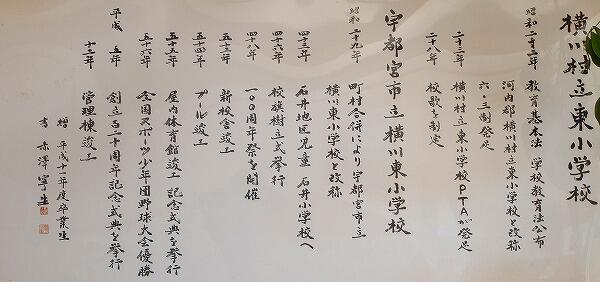 横川村立東小学校
昭和二十二年 教育基本法 学校教育法公布
河内郡横川村立東小学校と改称
六・三制発足
二十三年 横川村立東小学校PTAが発足
二十八年 校歌を制定
宇都宮市立横川東小学校
昭和二十九年 町村合併により宇都宮市立
横川東小学校と改称
四十三年 石井地区児童 石井小学校へ
四十六年 校旗樹立式挙行
四十八年 一〇〇周年祭を開催
五十三年 新校舎竣工
五十四年 プール竣工
五十五年 屋内体育館竣工 記念式典を挙行
五十六年 全国スポーツ少年団野球大会優勝
平成 五年 創立百二十周年記念式典を挙行
十二年 管理棟竣工
贈 平成十一年度卒業生
書 赤澤寧生